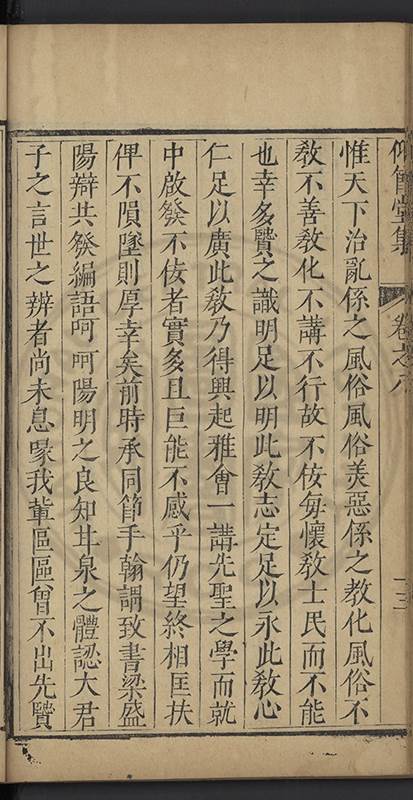 仰節堂集
卷之八
十三
惟天下治亂係之風俗風俗美惡係之教化風俗不
教不善教化不講不行故不佞每懷教士民而不能
也幸多賢之識明足以明此教志定足以永此教心
仁足以廣此教乃得興起雅會一講先聖之學而就
中啟發不佞者實多且巨能不感乎仍望終相匡扶
俾不隕墜則厚幸矣前時承同節手翰謂致書梁盛
陽辯共發編語呵呵陽明之良知甘泉之體認大君
子之言世之辨者尚未息喙我輩區區曾不出先賢